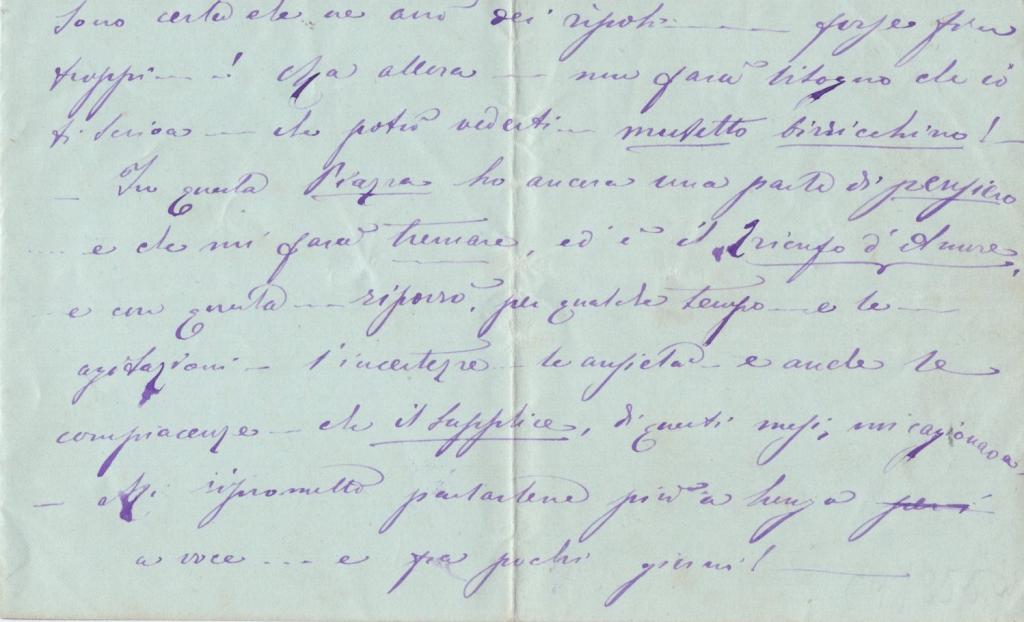 sono certa che ne avrò dei riposi ——— forse fin
troppi —— ! Ma allora —— non farà bisogno che io
ti scriva —— che potrò vederti — musetto birricchino! —
— In questa Piazza ho ancora una parte di pensiero
... e che mi farà tremare, ed è il Trionfo d'Amore,
e con questa —— riposrò, per qualche tempo — e le —
agitazioni — l'incertezze — le ansietà — e anche le
compiacenze — che il Supplice, di questi mesi, mi cagionava
— Mi riprometto parlartene più a lungo
a voce .... e fra pochi giorni! ———